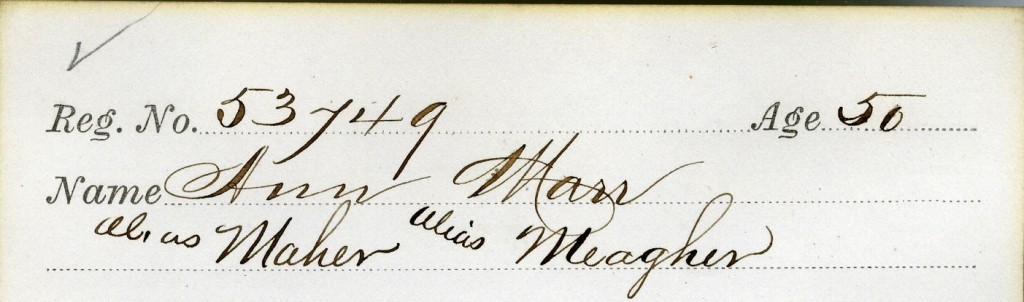 Reg. No. 53749 Age 50
Name Ann Marr
alias Maher alias Meagher